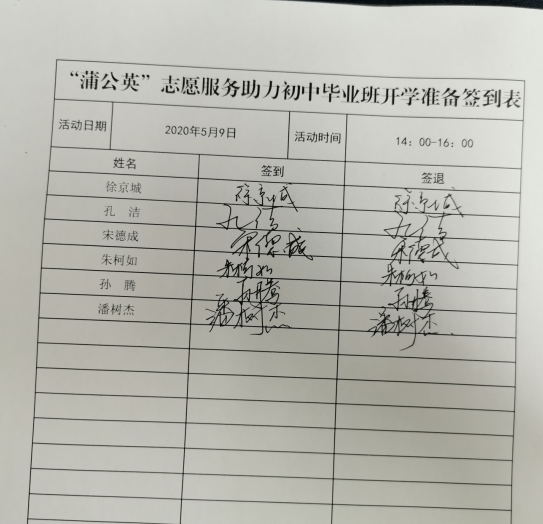 “蒲公英”志愿服务助力初中毕业班开学准备签到表
活动日期 2020年5月9日 活动时间 14：00-16：00
姓名 签到 签退
徐京城 徐京城 徐京城
孔 洁 孔洁 孔洁
宋德成 宋德成 宋德成
朱柯如 朱柯如 朱柯如
孙 腾 孙腾 孙腾
潘树杰 潘树杰 潘树杰